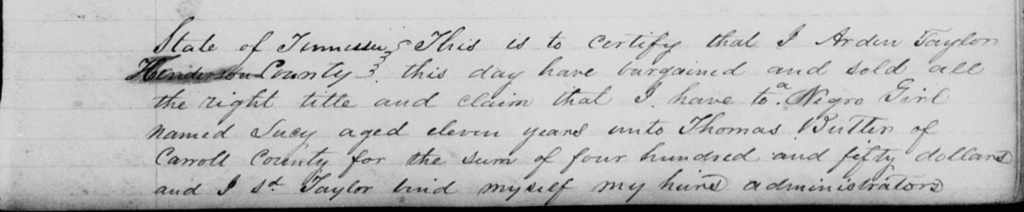 State of Tennessee } This is to certify that I Arden Taylor
Henderson County } this day have bargained and sold all
the right title and claim that I have to a Negro Girl
named Lucy aged eleven years unto Thomas Butler of
Carroll County for the sum of four hundred and fifty dollars
and I sd. Taylor bind myself my heirs administrators